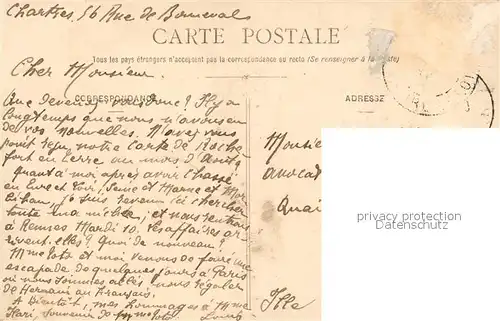 Chartres, 56 Rue de Bonneval
CARTE POSTALE
Tous les pays étrangers n'acceptent pas la correspondance au recto (Se renseigner à la Poste)
Cher Monsieur
CORRESPONDANCE
ADRESSE
Que devenez vous donc? Il y a
longtemps que nous n'avons eu
de vos nouvelles. N'avez vous
point reçu notre carte de Roche
fort en terre au mois d'août
Quant à moi après avoir chassé
en Eure et Loir, Seine et Marne et Mor
bihan, je suis revenu ici chercher
toute ma et nous rentrons
à Rennes Mardi 10. Les affaires ar
rivent-elles? Quoi de nouveau?
Mme et moi venons de faire une
escapade de quelques jours à Paris
où nous sommes allés nous régaler
de Hernani au Français.
A Bientôt, mes hommages à Mme
Souvenir de Mme Louis
Monsie
avocat
Quai
Ille
privacy protection
Datenschutz